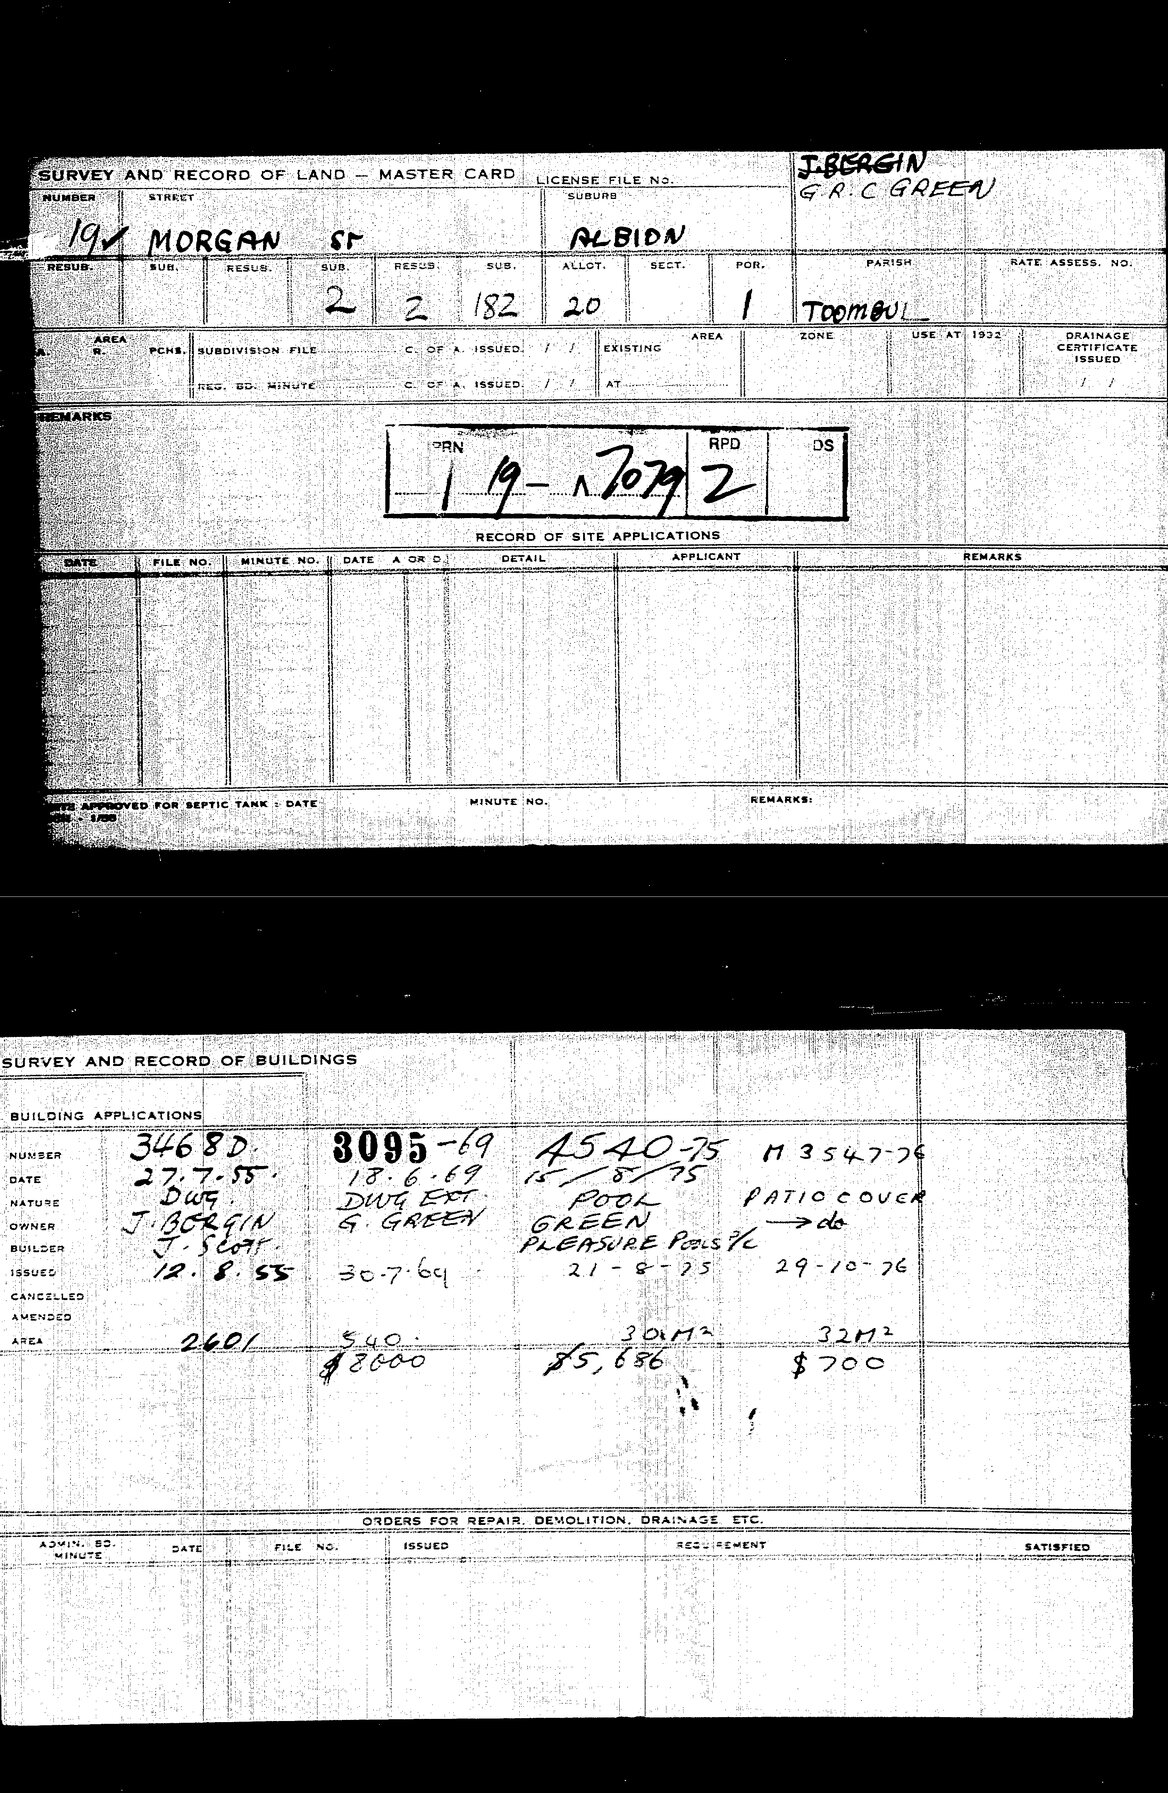 SURVEY AND RECORD OF LAND — MASTER CARD LICENSE FILE NO.
J. BERGIN
G. R. C GREEN
NUMBER STREET SUBURB
19✓ MORGAN ST ALBION
RESUB. SUB. RESUB. SUB. RESUB. SUB. ALLOT. SECT. POR. PARISH RATE ASSESS. NO.
2 2 182 20 1 TOOMBUL
AREA
A. R. PCHS. SUBDIVISION FILE C. OF A. ISSUED. / / EXISTING AREA ZONE USE AT 1932 DRAINAGE CERTIFICATE ISSUED
REG. BD. MINUTE C. OF A. ISSUED. / / AT / /
REMARKS
PRN RPD DS
1 19 - 7079 2
RECORD OF SITE APPLICATIONS
DATE FILE NO. MINUTE NO. DATE A OR D. DETAIL APPLICANT REMARKS
APPROVED FOR SEPTIC TANK : DATE MINUTE NO. REMARKS:
SURVEY AND RECORD OF BUILDINGS
BUILDING APPLICATIONS
NUMBER 3468D. 3095-69 4540-75 M 3547-76
DATE 27.7.55. 18.6.69 15/8/75
NATURE DWG. DWG EXT POOL PATIO COVER
OWNER J. BERGIN G. GREEN GREEN → do
BUILDER J. SCOTT. PLEASURE POOLS P/L
ISSUED 12.8.55 30.7.69 21-8-75 29-10-76
CANCELLED
AMENDED
AREA 2601 540. 30 M² 32M²
$8000 $5,686 $700
ORDERS FOR REPAIR, DEMOLITION, DRAINAGE, ETC.
ADMIN. BD. MINUTE DATE FILE NO. ISSUED REQUIREMENT SATISFIED